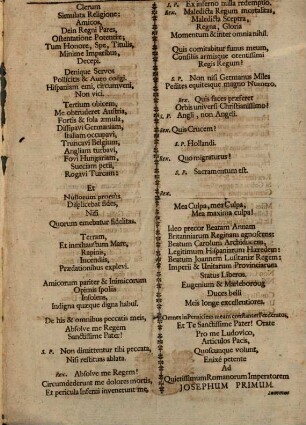 Clerum
Simulata Religione;
Amicos,
Dein Regni Pares,
Ostentatione Potentiæ;
Tum Honore, Spe, Titulis,
Minime Imparibus,
Decepi.
Denique Servos
Pollicitis & Auro coegi.
Hispaniam emi, circumveni,
Non vici.
Tertium obicem,
Me obtruderet Austria,
Fortis & sola æmula,
Dissipavi Germaniam,
Italiam occupavi,
Truncavi Belgium,
Angliam turbavi,
Fovi Hungariam,
Sueciam petii,
Rogavi Turcam:
Et
Nullorum prorsus
Displicebat fides,
Nisi
Quorum emebatur fidelitas.
Terram,
Et inexhaustum Mare,
Rapinis,
Incendiis,
Prædationibus explevi.
Amicorum pariter & Inimicorum
Opimis spoliis
Insolens,
Indigna quæque digna habui.
De his & omnibus peccatis meis,
Absolve me Regem
Sanctissime Pater!
S. P. Non dimittentur tibi peccata,
Nisi restitutis ablata.
Rex. Absolve me Regem!
Circumdederunt me dolores mortis,
Et pericula Inferni invenerunt me,
S. P. Ex inferno nulla redemptio,
Rex. Maledicta Regum mortalitas,
Maledicta Sceptra,
Regna, Gloria
Momentum & inter omnia nihil.
Quis comitabitur funus meum,
Consiliis armisque otentissimi
Regis Regum?
S. P. Non nisi Germanus Miles
Pedites equitesque magno Numero.
Rex. Quis faces præferet
Orbis universi Christianissimo?
S. P. Angli, non Angeli.
Rex. Quis Crucem?
S. P. Hollandi.
Rex. Quo migraturus?
S. P. Sacramentum est.
Rex.
Mea Culpa, mea Culpa,
Mea maxima culpa!
Ideo precor Beatam Annam
Britanniarum Reginam agnoscens:
Beatum Carolum Archiducem,
Legitimum Hispaniarum Hæredem:
Beatum Joannem Lusitaniæ Regem:
Imperii & Unitarum Provinciarum
Status Liberos,
Eugenium & Marleboroug,
Duces belli
Meis longe excellentiores.
Omnes in Perniciem meam constanter Fœderatos,
Et Te Sanctissime Pater! Orate
Pro me Ludovico,
Articulos Pacis,
Quoscunque volunt,
Enixè petente
Ad
Quietissimum Romanorum Imperatorem
JOSEPHUM PRIMUM.